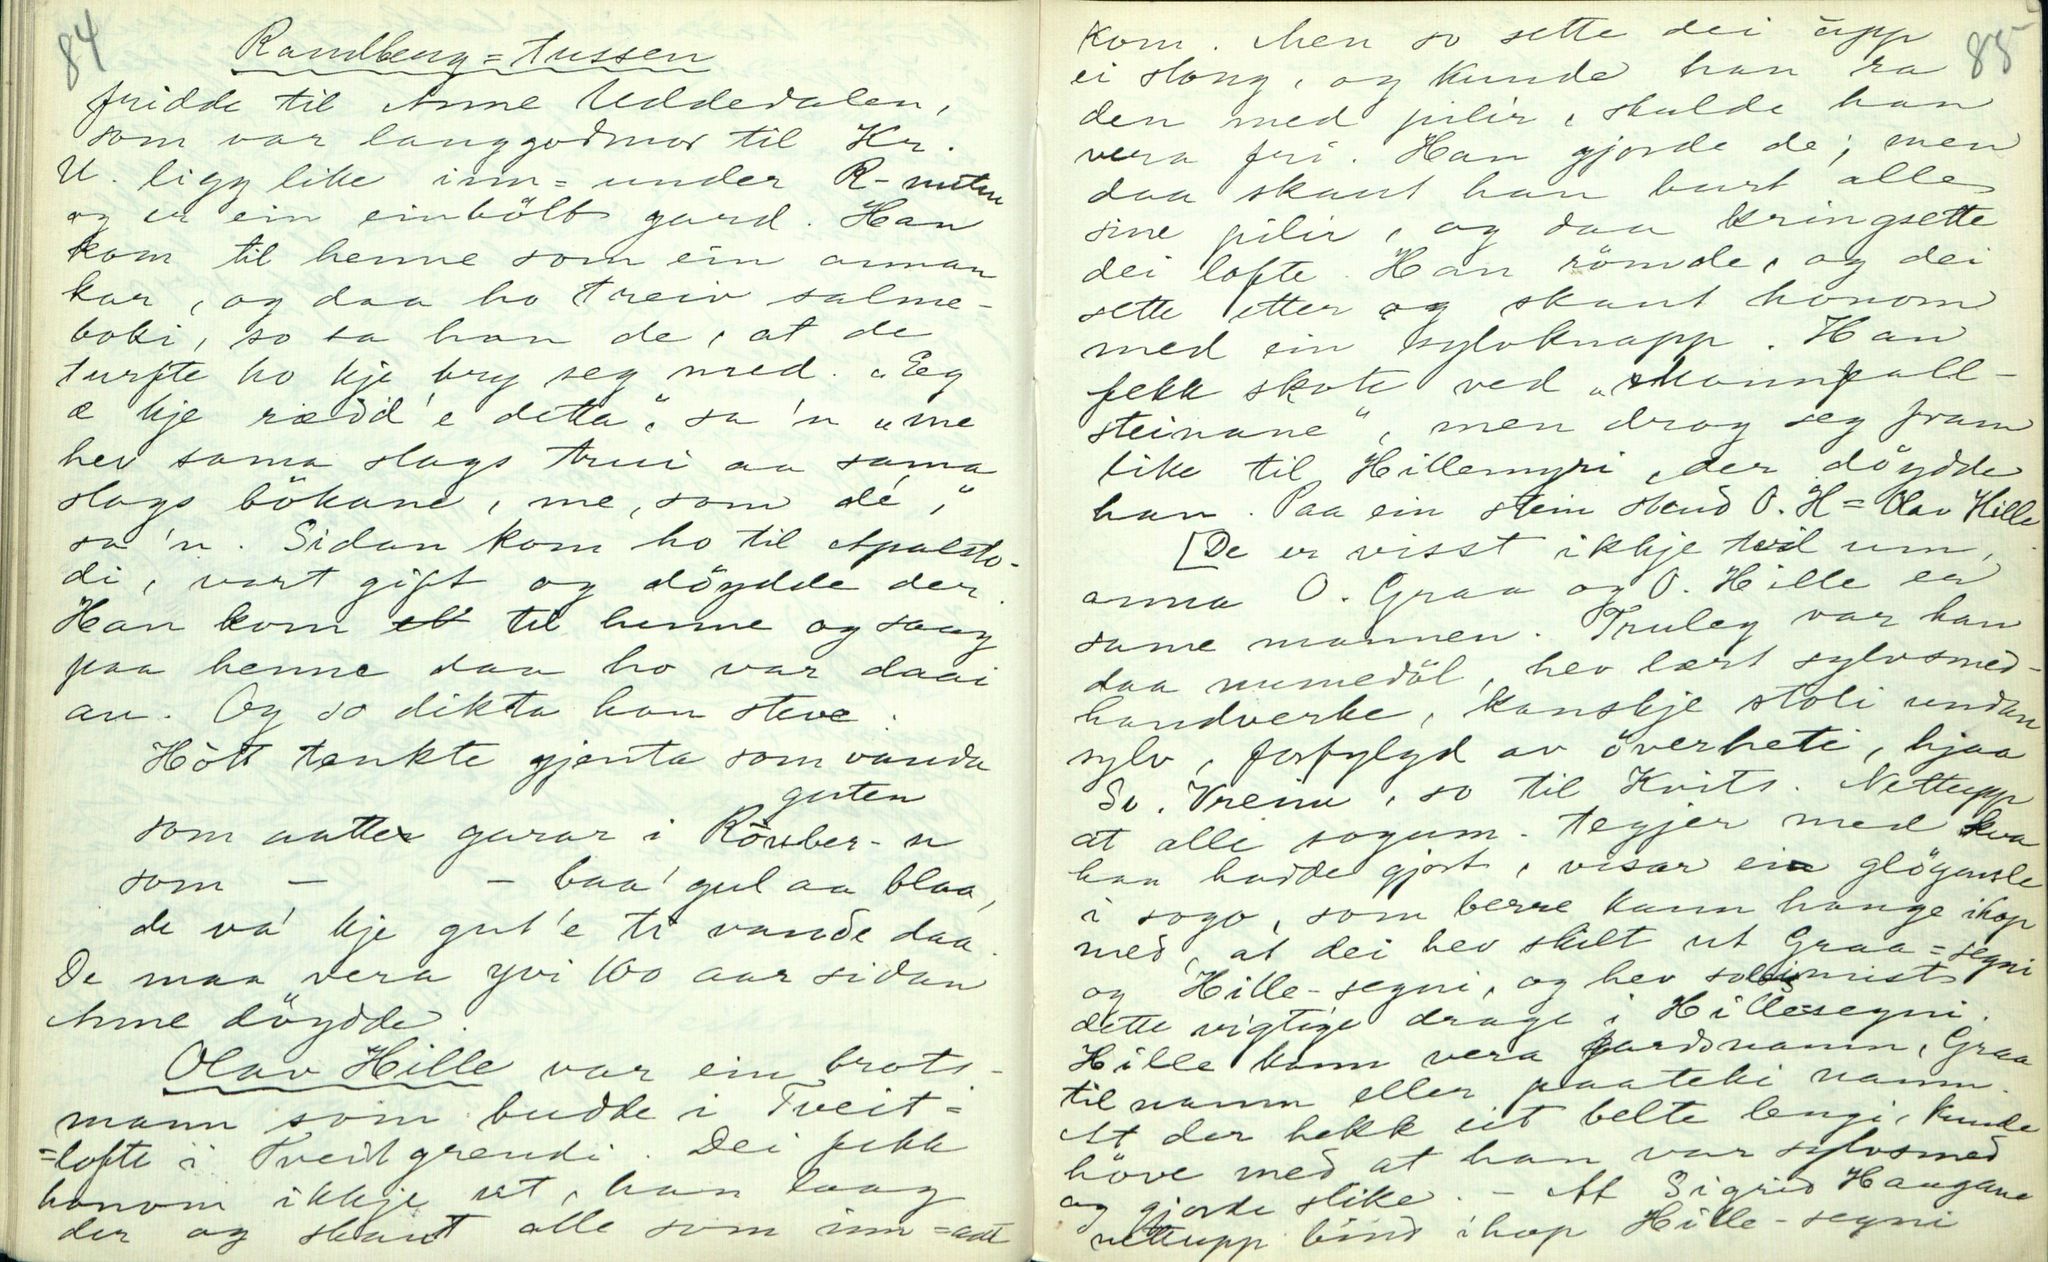 84
Randberg=tussen
fridde til Anne Uddedalen,
som var langgodmor til Kr.
U. ligg like inn=under R-nuten
og er ein einbölt gard. Han
kom til henne som ein annan
kar, og daa ho treiv salme-
boki, so sa han de, at de
turfte ho kje bry seg med. „Eg
æ kje rædd'e detta", sa'n „me
hev sama slags trui aa sama
slags bökane, me, som dé",
sa'n. Sidan kom ho til Apalsto-
di, vart gift og döydde der.
Han kom til henne og saag
paa henne daa ho var daai
an. Og so dikta han steve.
Hòtt tenkte gjenta som vanda
guten
som aatte garar i Rönber-n
som — — baa' gul aa blaa,
de va' kje gut'e ti vande daa.
De maa vera yvi 100 aar sidan
Anne döydde.
Olav Hille var ein brots-
mann som budde i Tveit=
=lofte i Tveitgrendi. Dei fekk
honom ikkje ut, han laag
der og skaut alle som inn=aat
85
kom. Men so sette dei upp
ei stong, og kunde han ra
den med pilir, skulde han
vera fri. Han gjorde de; men
daa skaut han burt alle
sine pilir, og daa kringsette
dei lofte. Han römde, og dei
sette etter og skaut honom
med ein sylvknapp. Han
fekk skote ved „Mannfall-
steinane", men drog seg fram
like til Hillemyri, der döydde
han. Paa ein stein stend O. H = Olav Hille.
[De er visst ikkje tvil um,
anna O. Graa og O. Hille er
same mannen. Truleg var han
daa numedöl, hev lært sylvsmed-
handverke, kanskje stoli undan
sylv, forfylgd av överheti, hjaa
Sv. Vreim, so til Kvits. Nettupp
at alli sogum. tegjer med kva
han hadde gjort, visar ein glögansle
i sogo, som berre kann hange ihop
med, at dei hev skilt ut Graa=segni
og Hille-segni, og hev so mist
dette vigtige drage i Hillesegni.
Hille kann vera gardsnamn, Graa
tilnamn eller paateki namn.
At der hekk eit belte lengi, kunde
höve med at han var sylvsmed
og gjorde slike. — At Sigrid Haugane
nettupp bind ihop Hille-segni